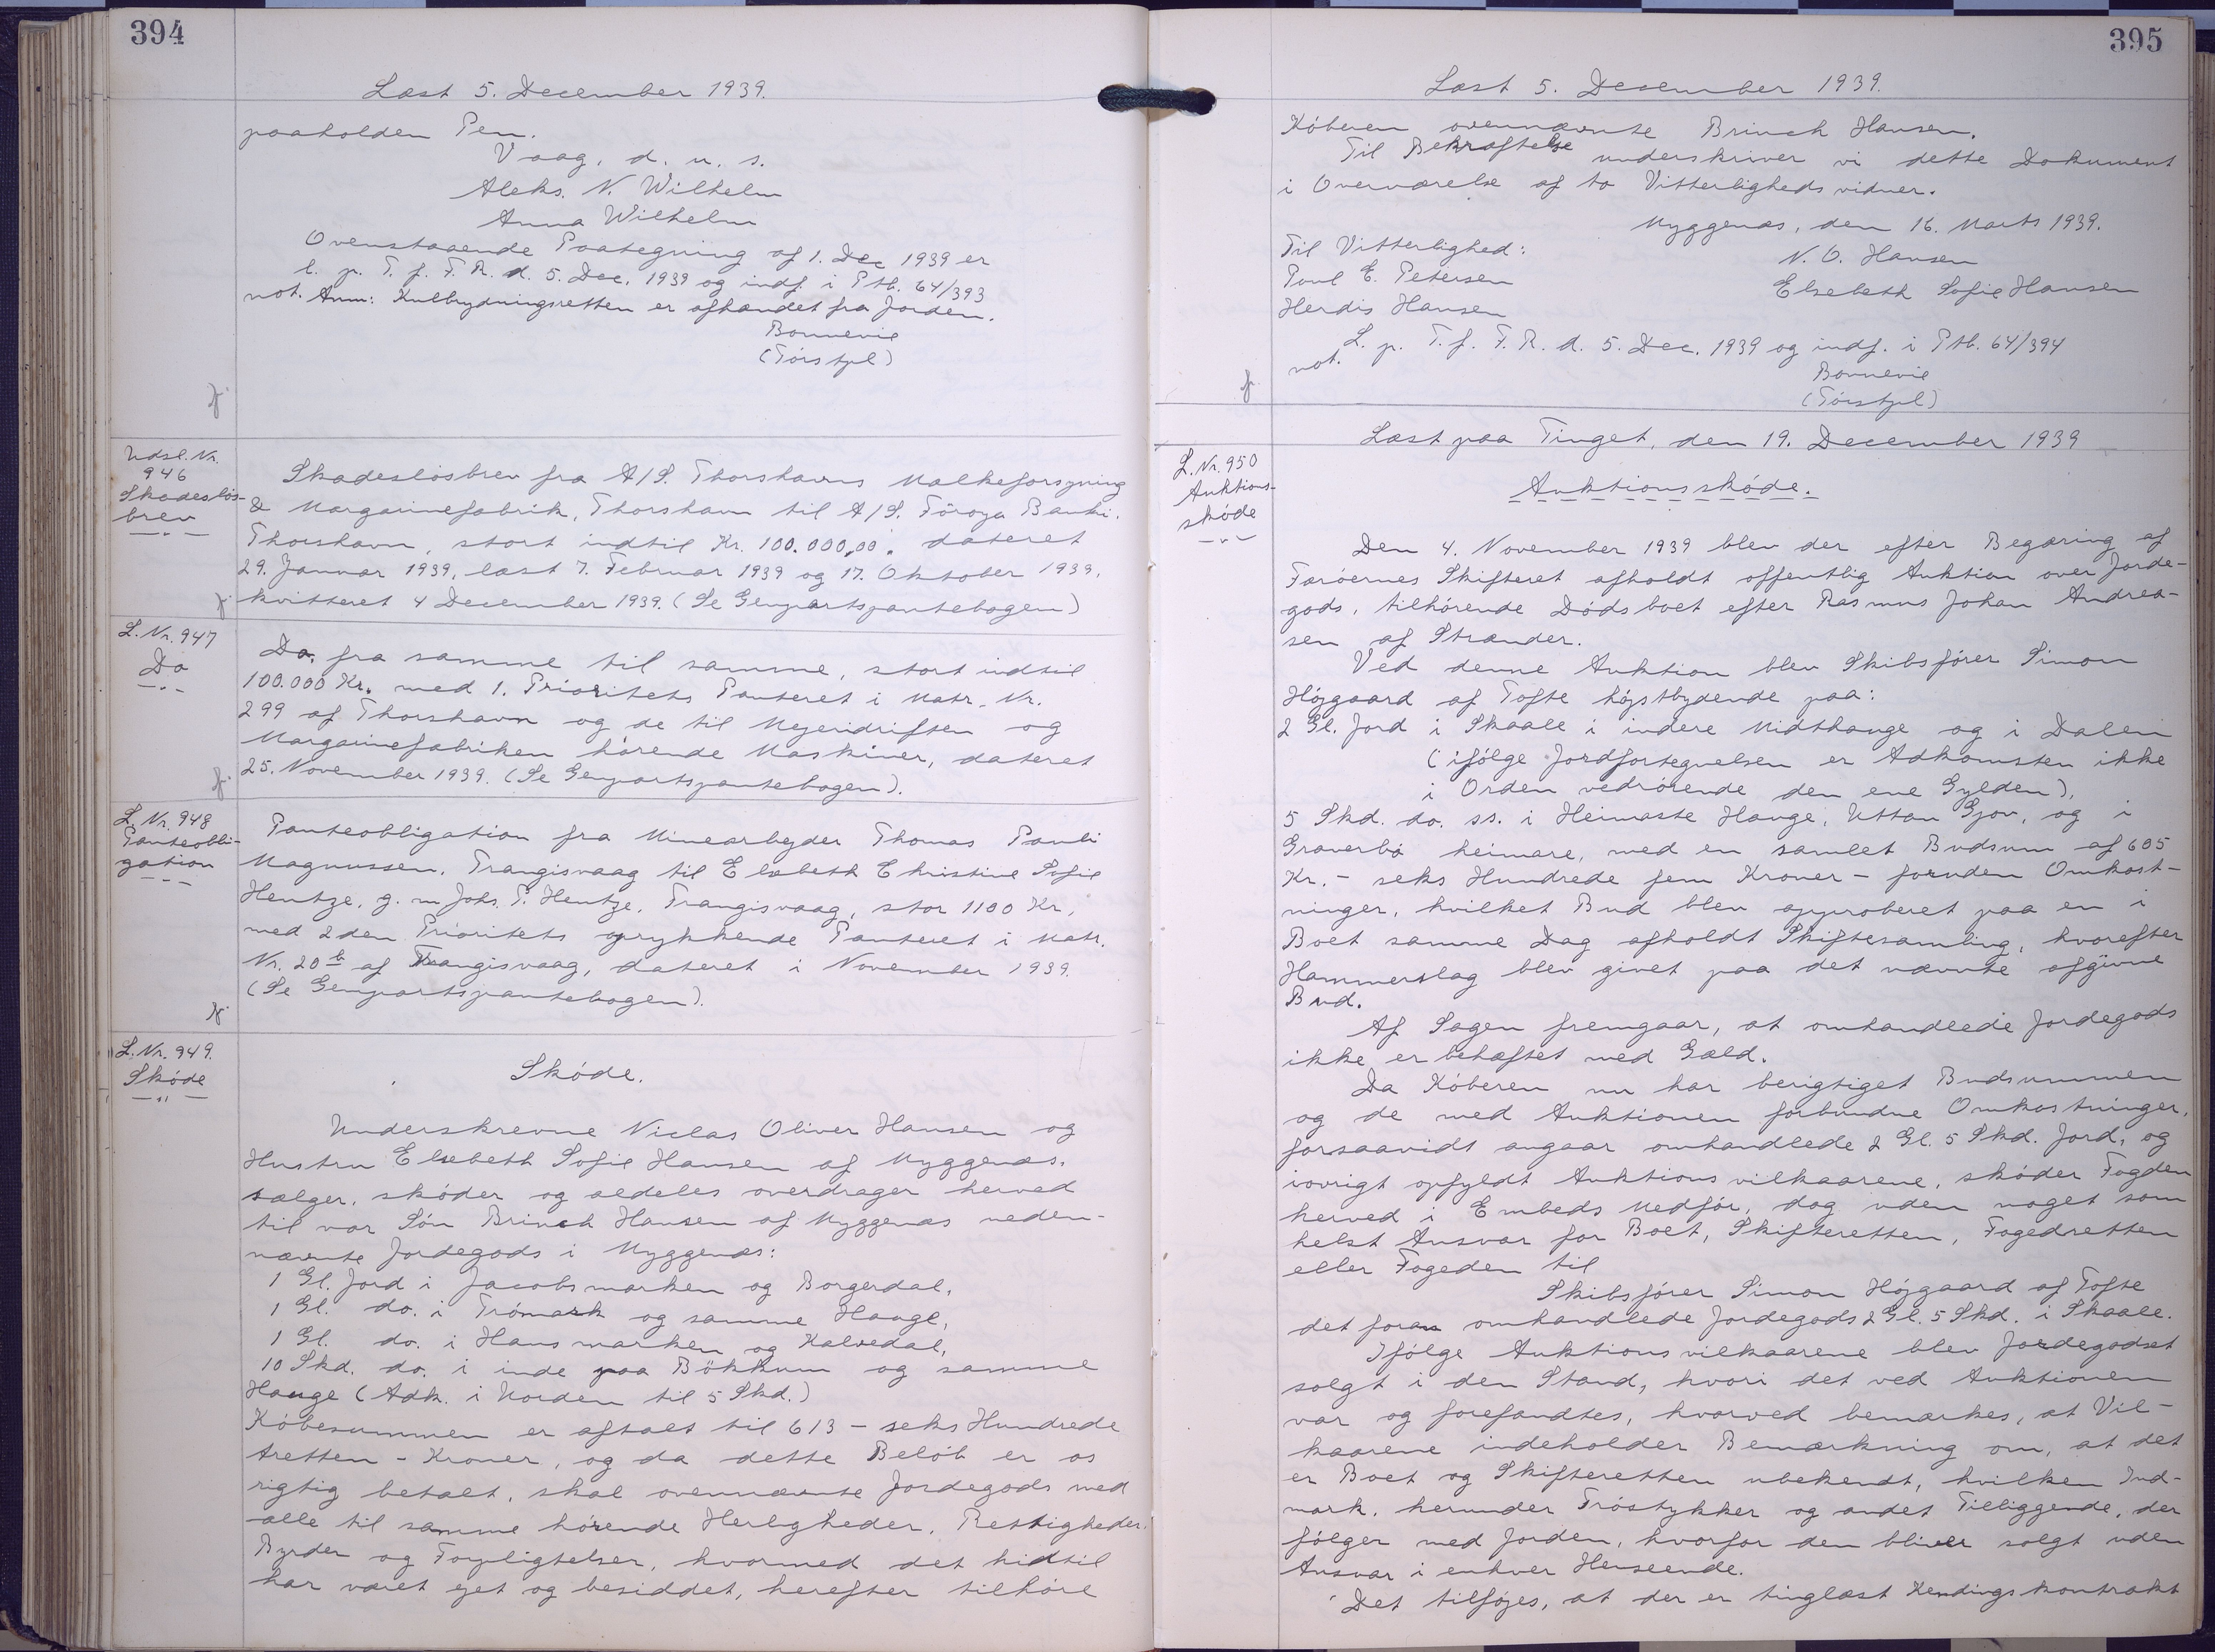 394
Læst 5. December 1939.
paaholden Pen.
Vaag, d. u. s.
Aleks. N. Wilhelm
Anna Wilhelm
Ovenstaaende Paategning af 1. Dec 1939 er
l. p. T. f. F. R. d. 5. Dec. 1939 og indf. i Ptb. 64/393
not. Anm: Kulbrydningsretten er afhændet fra Jorden.
Bonnevie
(Tórstpl)
Udsl. Nr.
946
Skadeslös-
brev
Skadeslösbrev fra A/S. Thorshavns Mælkeforsyning
& Margarinefabrik, Thorshavn til A/S. Föroya Banki.
Thorshavn, stort indtil Kr. 100.000,00. dateret
29. Januar 1939, læst 7. Februar 1939 og 17. Oktober 1939,
kvitteret 4 December 1939. (Se Genpartspantebogen)
L. Nr. 947
Do
Do. fra samme til samme, stort indtil
100.000 Kr. med 1. Prioritets Panteret i Matr. Nr.
299 af Thorshavn og de til Mejeridriften og
Margarinefabriken hörende Maskiner, dateret
25. November 1939. (Se Genpartspantebogen).
L. Nr. 948
Panteobli-
gation
Panteobligation fra Minearbejder Thomas Pauli
Magnussen, Trangisvaag til Elsebeth Christine Sofie
Hentze, g. m Johs. P. Hentze, Trangisvaag, stor 1100 Kr,
med 2den Prioritets oprykkende Panteret i Matr.
Nr. 20 b af Trangisvaag, dateret i November 1939.
(Se Genpartspantebogen).
L. Nr. 949.
Sköde
Sköde.
Underskrevne Niclas Oliver Hansen og
Hustru Elsebeth Sofie Hansen af Myggenæs.
sælger, sköder og aldeles overdrager herved
til vor Sön Brinch Hansen af Myggenæs neden-
nævnte Jordegods i Myggenæs:
1 Gl. Jord i Jacobsmarken og Borgerdal,
1 Gl. do. i Trómark og samme Hauge,
1 Gl. do. i Hansmarken og Kalvedal,
10 Skd. do. i inde paa Bökkum og samme
Hauge (Adk. i Uorden til 5 Skd.)
Köbesummen er aftalt til 613 - seks Hundrede
tretten - Kroner, og da dette Belöb er os
rigtig betalt, skal ovennævnte Jordegods med
alle til samme hörende Herligheder, Rettigheder.
Byrder og Forpligtelser, hvormed det hidtil
har været ejet og besiddet, herefter tilhöre
395
Læst 5. Desember 1939.
Köberen ovennævnte Brinch Hansen.
Til Bekræftelse underskriver vi dette Dokument
i Overværelse af to Vitterligheds vidner.
Myggenæs, den 16. Marts 1939.
Til Vitterlighed:
N. O. Hansen
Poul E. Petersen
Elsebeth Sofie Hansen
Herdis Hansen
L. p. T. f. F. R. d. 5. Dec. 1939 og indf. i Ptb. 64/394
not.
Bonnevie
(Tórstpl)
Læst paa Tinget, den 19. December 1939
L. Nr. 950
Auktions-
sköde
Auktionssköde.
Den 4. November 1939 blev der efter Begæring af
Færöernes Skifteret afholdt offentlig Auktion over Jorde-
gods, tilhörende Dödsboet efter Rasmus Johan Andrea-
sen af Strænder.
Ved denne Auktion blev Skibsförer Simon
Höjgaard af Tofte höjstbydende paa:
2 Gl. Jord i Skaale i indere Midthauge og i Dalen
(ifölge Jordfortegnelsen er Adkomsten ikke
i Orden vedrörende den ene Gylden),
5 Skd. do. ss. i Heimaste Hauge, Uttan Gjov, og i
Graverbö heimare, med en samlet Budsum af 605
Kr. - seks Hundrede fem Kroner - foruden Omkost-
ninger, hvilket Bud blev approberet paa en i
Boet samme Dag afholdt Skiftesamling, hvorefter
Hammerslag blev givet paa det nævnte afgivne
Bud.
Af Sagen fremgaar, at omhandlede Jordegods
ikke er behæftet med Gæld.
Da Köberen nu har berigtiget Budsummen
og de med Auktionen forbundne Omkostninger,
forsaavidt angaar omhandlede 2 Gl. 5 Skd. Jord, og
iövrigt opfyldt Auktionsvilkaarene, sköder Fogden
herved i Embeds Medför, dog uden noget som
helst Ansvar for Boet, Skifteretten, Fogedretten
eller Fogeden til
Skibsförer Simon Höjgaard af Tofte
det foran omhandlede Jordegods 2 Gl. 5 Skd. i Skaale.
Ifölge Auktionsvilkaarene blev Jordegodset
solgt i den Stand, hvori det ved Auktionen
var og forefandtes, hvorved bemærkes, at Vil-
kaarene indeholder Bemærkning om, at det
er Boet og Skifteretten ubekendt, hvilken Ind-
mark, herunder Tröstykker og andet Tilliggende, der
fölger med Jorden, hvorfor den bliver solgt uden
Ansvar i enhver Henseende.
Det tilföjes, at der er tinglæst Kendingskontrakt